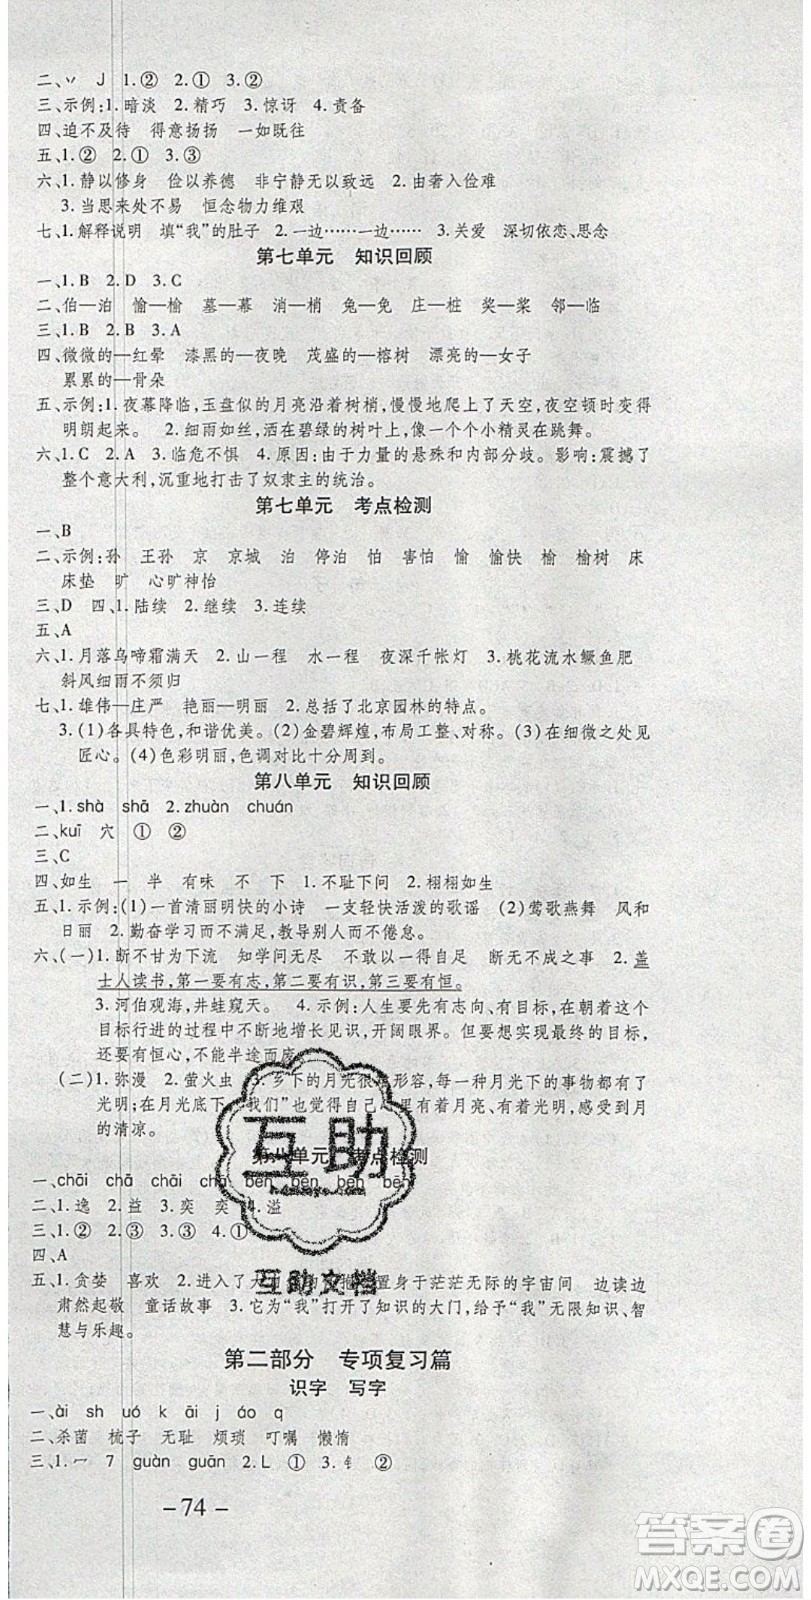 二、丷 J 1.② 2.① 3.②
三、示例:1.暗淡 2.精巧 3.惊讶 4.责备
四、迫不及待 得意扬扬 一如既往
五、1.② 2.① 3.③
六、1.静以修身 俭以养德 非宁静无以致远 2.由奢入俭难
3.当思来处不易 恒念物力维艰
七、1.解释说明 填“我”的肚子 2.一边……一边…… 3.关爱 深切依恋、思念
第七单元 知识回顾
一、1.B 2.D 3.C
二、伯—泊 愉—榆 墓—幕 消—梢 兔—免 庄—桩 奖—桨 邻—临
三、1.B 2.B 3.A
四、微微的—红晕 漆黑的—夜晚 茂盛的—榕树 漂亮的—女子
累累的—骨朵
五、示例:1.夜幕降临,玉盘似的月亮沿着树梢,慢慢地爬上了天空,夜空顿时变得
明朗起来。 2.细雨如丝,洒在碧绿的树叶上,像一个个小精灵在跳舞。
六、1.C 2.A 3.临危不惧 4.原因:由于力量的悬殊和内部分歧。影响:震撼了
整个意大利,沉重地打击了奴隶主的统治。
第七单元 考点检测
一、B
二、示例:孙 王孙 京 京城 泊 停泊 怕 害怕 愉 愉快 榆 榆树 床
床垫 旷 心旷神怡
三、D 四、1.陆续 2.继续 3.连续
五、A
六、1.月落乌啼霜满天 2.山一程 水一程 夜深千帐灯 3.桃花流水鳜鱼肥
斜风细雨不须归
七、1.雄伟—庄严 艳丽—明丽 2.总括了北京园林的特点。
3.(1)各具特色,和谐优美。(2)金碧辉煌,布局工整、对称。(3)在细微之处见
匠心。(4)色彩明丽,色调对比十分周到。
第八单元 知识回顾
一、1.shà shā 2.zhuàn chuán
二、kuī 穴 ① ②
三、C
四、如生 一 半 有味 不 下 1.不耻下问 2.栩栩如生
五、1.示例:(1)一首清丽明快的小诗 一支轻快活泼的歌谣 (2)莺歌燕舞 风和
日丽 2.勤奋学习而不满足,教导别人不倦怠。
六、(一)1.断不甘为下流 知学问无尽 不敢以一得自足 断无不成之事 2.盖
士人读书,第一要有志,第二要有识,第三要有恒。
3.河伯观海,井蛙窥天。 4.示例:人生要先有志向、有目标,在朝着这个
目标行进的过程中不断地增长见识,开阔眼界。但要想实现人生的目标,
还要有恒心,不能半途而废
(二)1.弥漫 2.萤火虫 3.乡下的月光很难形容,每一种月光下的事物都有
光明;在月光底下,“我们”觉得自己心里有着月亮、有着光明,感受到月
的清凉。
第八单元 考点检测
一、chāi chā chāi chā bèn bēn bèn bēn
二、1.逸 2.益 3.奕 奕 4.溢
三、1.② 2.② 3.③ 4.①
四、A
五、1.贪婪 喜欢 2.进入了大 置身于茫茫无际的宇宙间 边读边
肃然起敬 童话故事 3.它为“我”打开了知识的大门,给予“我”无限知识、智
慧与乐趣。
第二部分 专项复习篇
识字 写字
一、ài sh uó k āi j áo q
二、杀菌 梳子 无耻 烦琐 叮嘱 懒惰
三、1.冖 7 guàn guān 2.L ① 3.钅 ②
－74－
互助
互助文档
答案圈
MXQE.COM